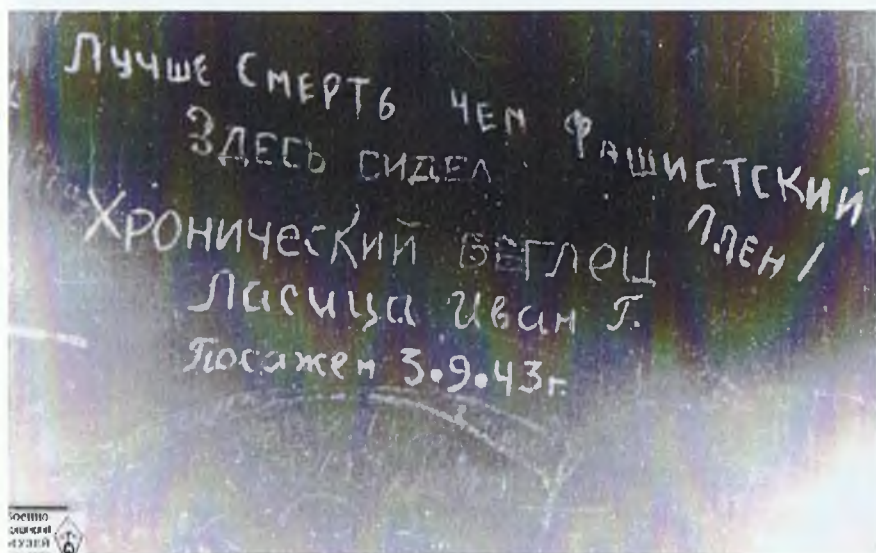 Лучше Смерть чем фашистский плен!
Здесь сидел
Хронический беглец
Ласица Иван Г.
Посажен 3.9.43г.
Военно
музей